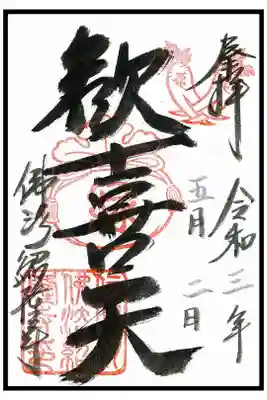 奉拝
令和三年
五月二日
歓喜天
佛法紹隆寺